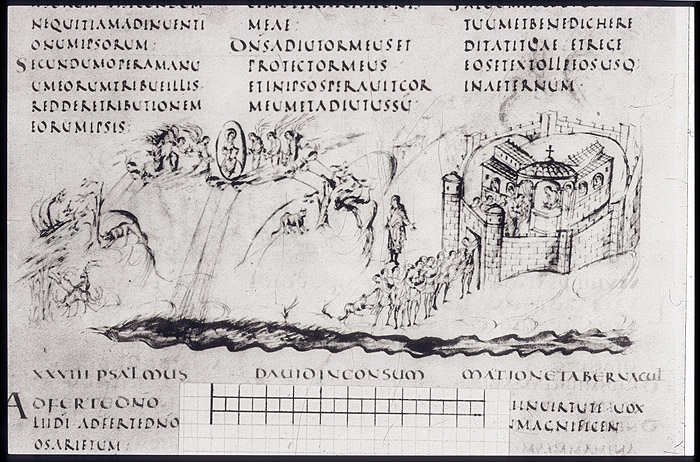 NEQUITIAMADINUENTI
ONUMIPSORUM
SECUNDUMOPERAMANU
UMEORUMTRIBUEILLIS
REDDERETRIBUTIONEM
EORUMIPSIS
MEAE
DNSADIUTORMEUSET
PROTECTORMEUS
ETINIPSOSPERAUITCOR
MEUMETADIUTUSSU
TUUMETBENEDICHERE
DITATITUAE ETREGE
EOSETEXTOLLEEOSUSQ
INAETERNUM
XXVIII PSALMUS DAUIDINCONSUM MATIONETABERNACUL
ADFERTEDNO
LIIDI ADFERTEDNO
OSARIETUM
INUIRTUTE UOX
MAGNIFICEN